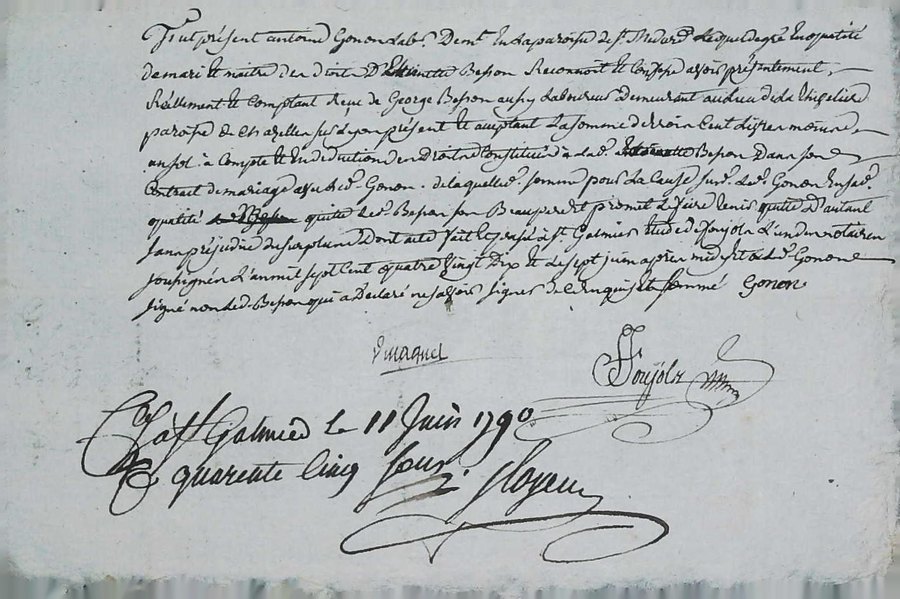 Fut présent antoine Gonon Lab.r Dem.t En La paroisse de S.t Medard Lequel degré En qualité
de mari Et maitre des Droits D'Etiennette Besson Reconnoit Et Confesse avoir présentement,
Reéllement Et Comptant Reçu de George Besson aussy Laboureur Demeurant au Lieu de La
paroisse de Chazelles présent Et acceptant La somme de trois Cent Livres
un sol à Compte Et En deduction des Droits Constitués à Lad.e Besson Dans son
Contrat de mariage avec Led.t Gonon. de laquelle somme pour La Cause Led.t Gonon En sad.e
qualité quitte Led.t Besson son Beaupere Et promet Le faire tenir quitte D'autant
sans préjudice de surplus Dont acte fait Et passé à S.t Galmier Etude de foujols L'un des notaires
soussignés L'an mil sept Cent quatre Vingt Dix Et Le sept juin apres midy Et a Led.t Gonon
signé non Led.t Besson qui a Declaré ne savoir signer de Ce Enquis Et sommé Gonon
foujols
C.lé à S.t Galmier le 11 Juin 1790
R. quarente Cinq Sous